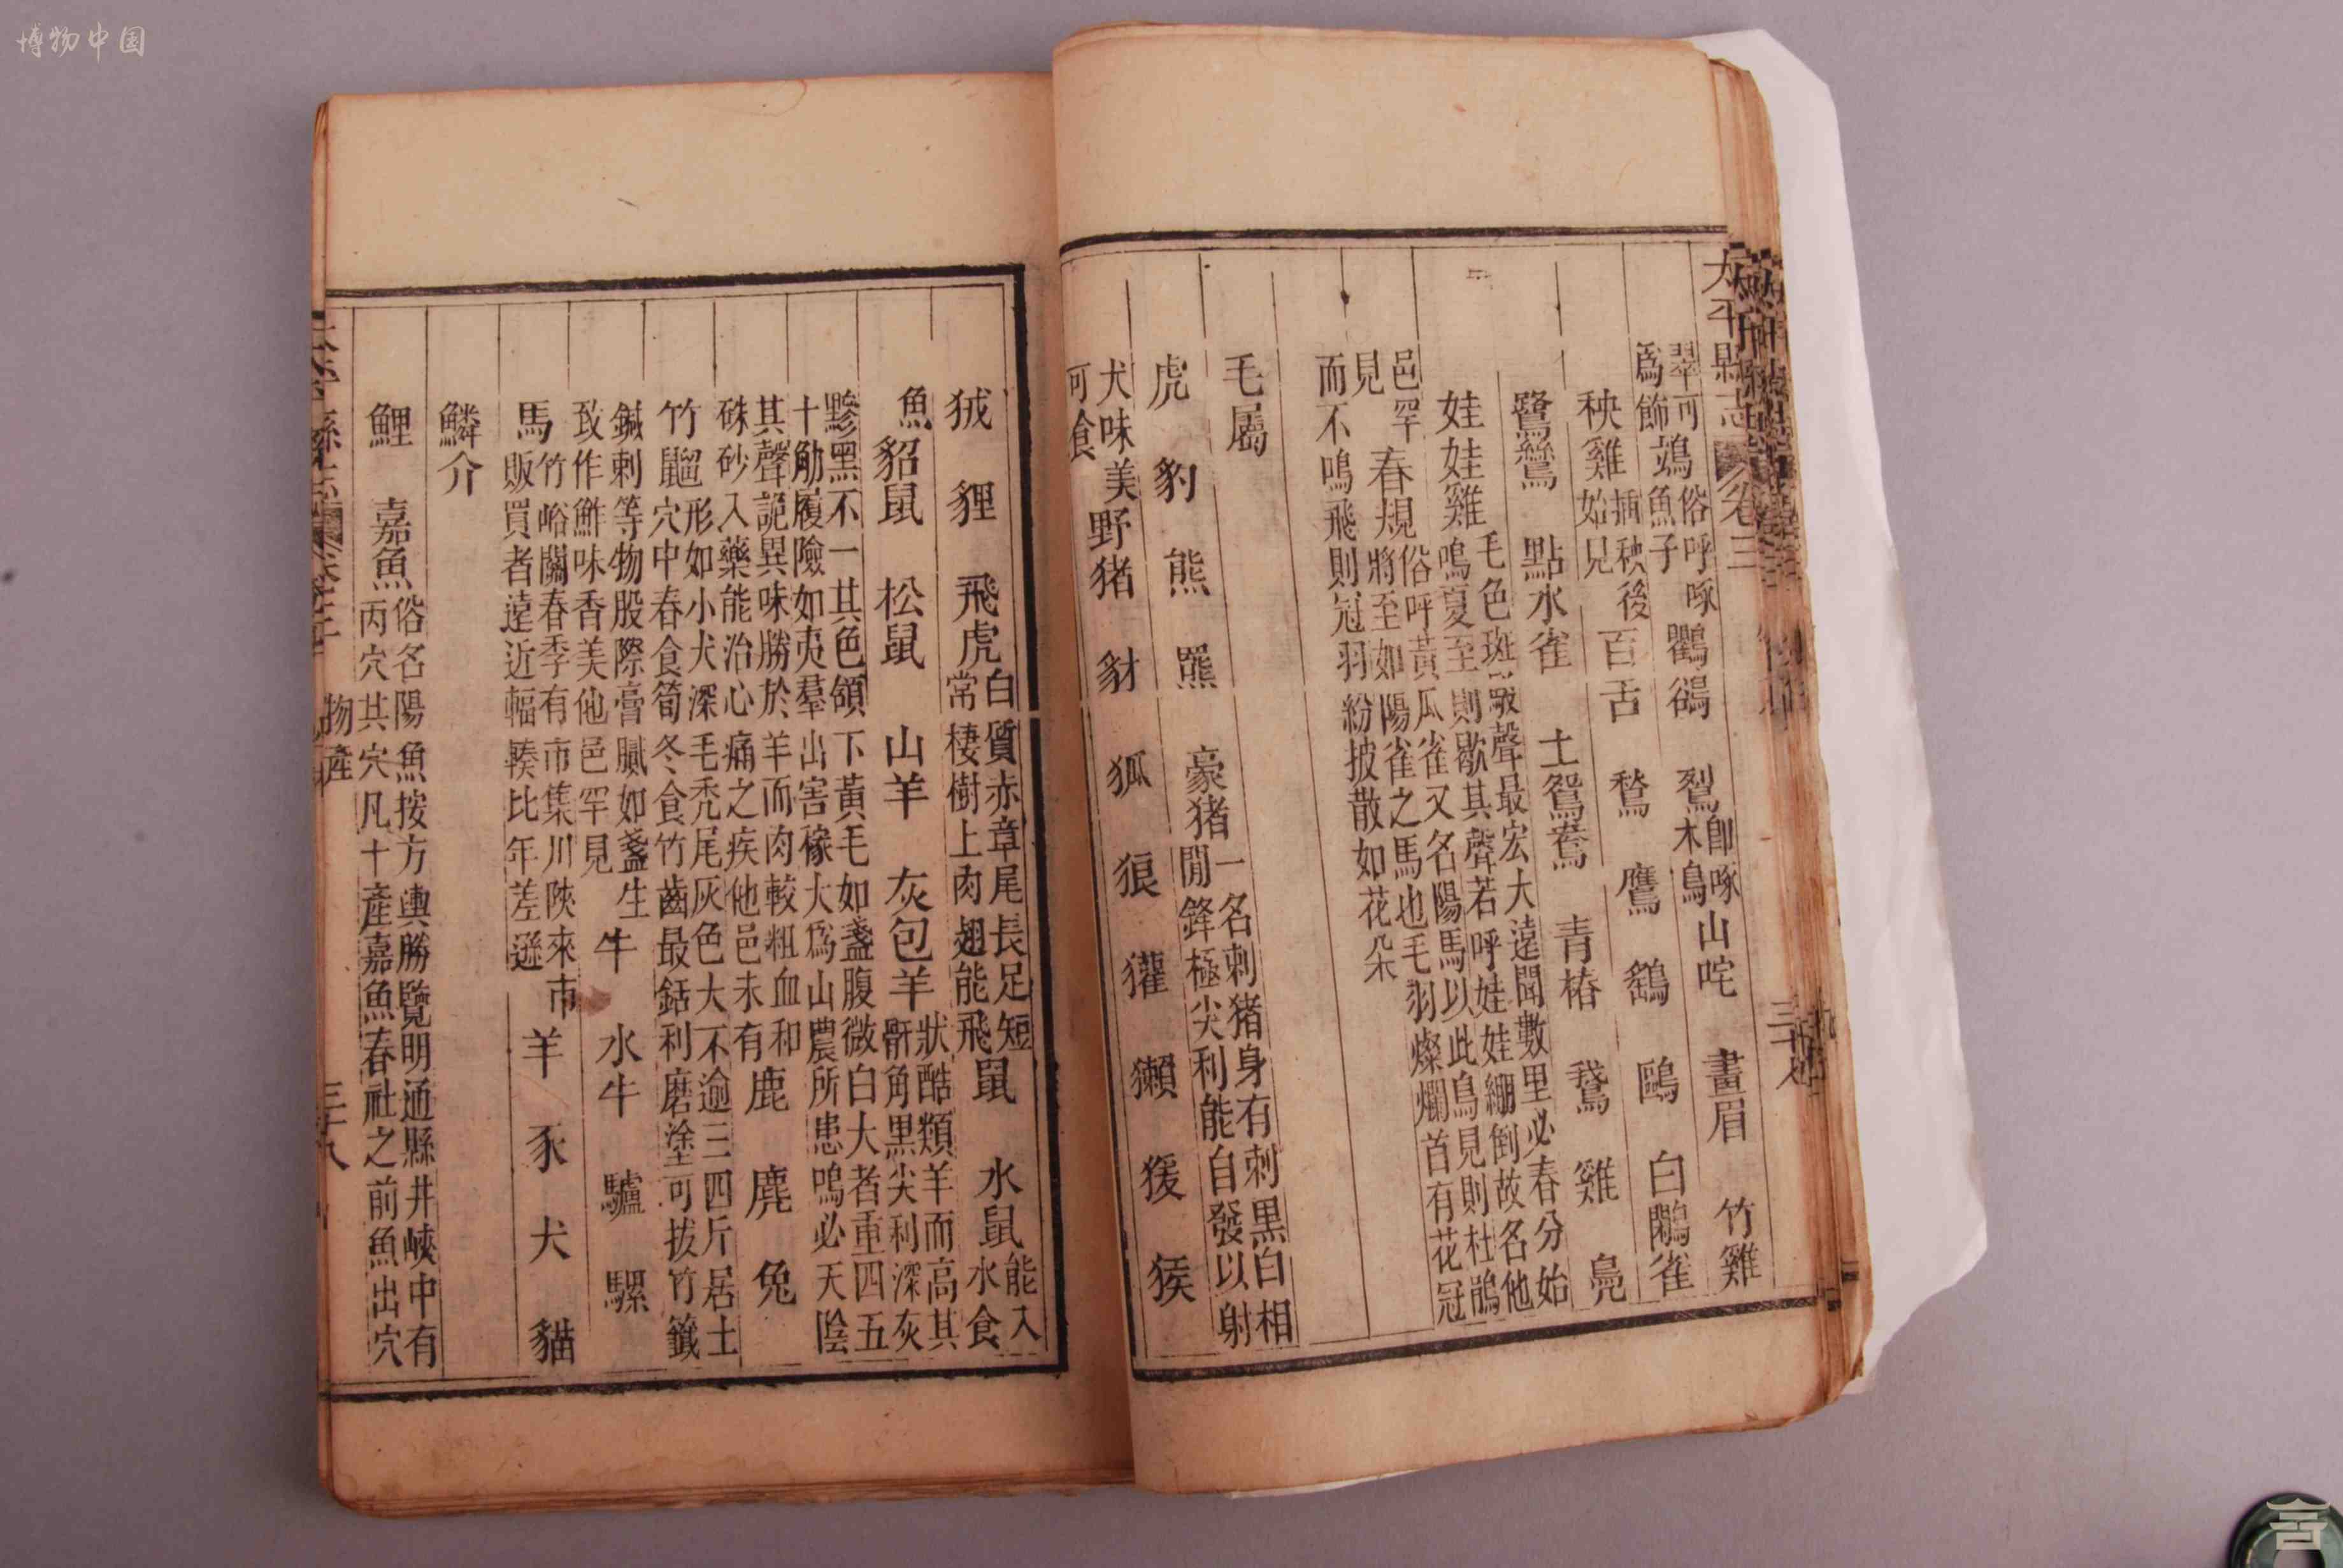 博物中国
大平縣志 卷三 三十七
翠可為飾 鴗俗呼啄魚子 鸜鵒 鴷即啄木鳥 山咤 畫眉 竹雞
秧雞插秧後始見 百舌 鶖 鷹 鶴 鷗 白鷴 雀
鷺鷥 點水雀 土鴛鴦 青樁 鵞 雞 鳧
娃娃雞毛色斑駁聲最宏大遠聞數里必春分始鳴夏至則歇其聲若呼娃娃綳倒故名他
邑罕見 春規俗呼黃瓜雀又名陽馬以此鳥見則杜鵑將至如陽雀之馬也毛羽燦爛首有花冠
而不鳴飛則冠羽紛披散如花朵
毛屬
虎 豹 熊 羆 豪猪一名刺猪身有刺黑白相閒鋒極尖利能自發以射
犬味美可飡 野猪 豺 狐 狼 獾 獺 猨 猴
狨 狸 飛虎白質赤章尾長足短常棲樹上肉翅能飛 鼠 水鼠能入水食
魚 貂鼠 松鼠 山羊 灰包羊狀酷類羊而高其骭角黑尖利深灰
黪黑不一其色頷下黃毛如盞腹微白大者重四五十觔履險如夷羣出害稼大為山農所患鳴必天陰
其聲詭異味勝於羊而肉較粗血和硃砂入藥能治心痛之疾他邑未有 鹿 麂 兔
竹鼺形如小犬深毛禿尾灰色大不逾三四斤居土穴中春食筍冬食竹齒最銛利磨塗可拔竹籤
鍼刺等物股際膏膩如盞生致作鮓味香美他邑罕見 牛 水牛 驢 騾
馬竹峪關春季有市集川陝來市販買者遠近輻輳比年差遜 羊 豕 犬 貓
鱗介
鯉 嘉魚俗名陽魚按方輿勝覽明通縣井峽中有丙穴其穴凡十產嘉魚春社之前魚出穴
物產 三十八